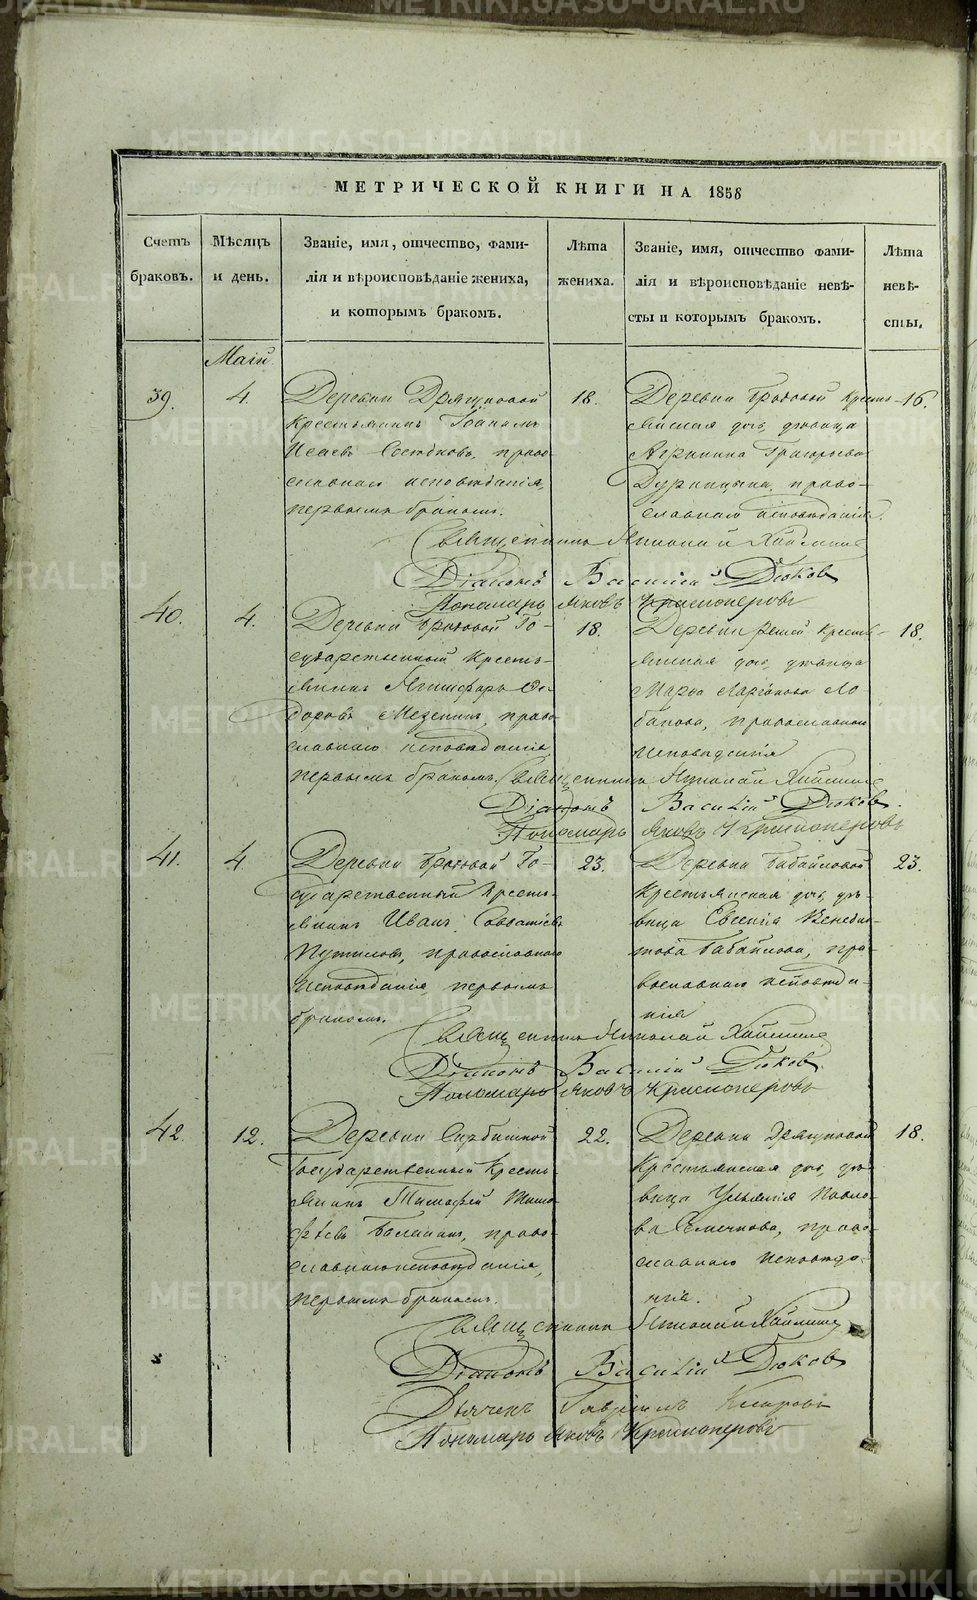 METRIKI.GASO-URAL.RU
МЕТРИЧЕСКОЙ КНИГИ НА 1858
Счетъ браковъ.
Мѣсяцъ и день.
Званіе, имя, отчество, фами-
лія и вѣроисповѣданіе жениха,
и которымъ бракомъ.
Лѣта
жениха.
Званіе, имя, отчество фами-
лія и вѣроисповѣданіе невѣ-
сты и которымъ бракомъ.
Лѣта
невѣ-
сты.
Маій
39.
4.
Деревни
Крестьянинъ
Исаевъ право-
славнаго исповѣданія,
первымъ бракомъ.
18.
Деревни Бродовой Кресть-
янская дочь, дѣвица
Григорьева
право-
славнаго исповѣданія.
16.
Священникъ Николай
Діаконъ Василій Дюковъ
Пономарь Яковъ Красноперовъ
40.
4.
Деревни Бродовой Го-
сударственный Кресть-
янинъ Никифоръ Ѳе-
доровъ Мезенинъ, право-
славнаго исповѣданія,
первымъ бракомъ.
18.
Деревни Кресть-
янская дочь, дѣвица
Марѳа Ло-
банова, православнаго
исповѣданія
18.
Священникъ Николай
Діаконъ Василій Дюковъ.
Пономарь Яковъ Красноперовъ
41.
4
Деревни Бродовой Го-
сударственный Кресть-
янинъ Иванъ Савватіевъ
Путиловъ, православнаго
исповѣданія, первымъ
бракомъ.
23.
Деревни Бабайловой
Крестьянская дочь, дѣ-
вица Евгенія Венедик-
това Бабайлова, пра-
вославнаго исповѣда-
нія
23.
Священникъ Николай
Діаконъ Василій Дюковъ.
Пономарь Яковъ Красноперовъ
42.
12.
Деревни
Государственный Кресть-
янинъ Тимофей Тимо-
фѣевъ право-
славнаго исповѣданія,
первымъ бракомъ.
22.
Деревни
Крестьянская дочь, дѣ-
вица Павло-
ва право-
славнаго исповѣда-
нія.
18.
Священникъ Николай
Діаконъ Василій Дюковъ
Дьячекъ Гавріилъ
Пономарь Яковъ Красноперовъ